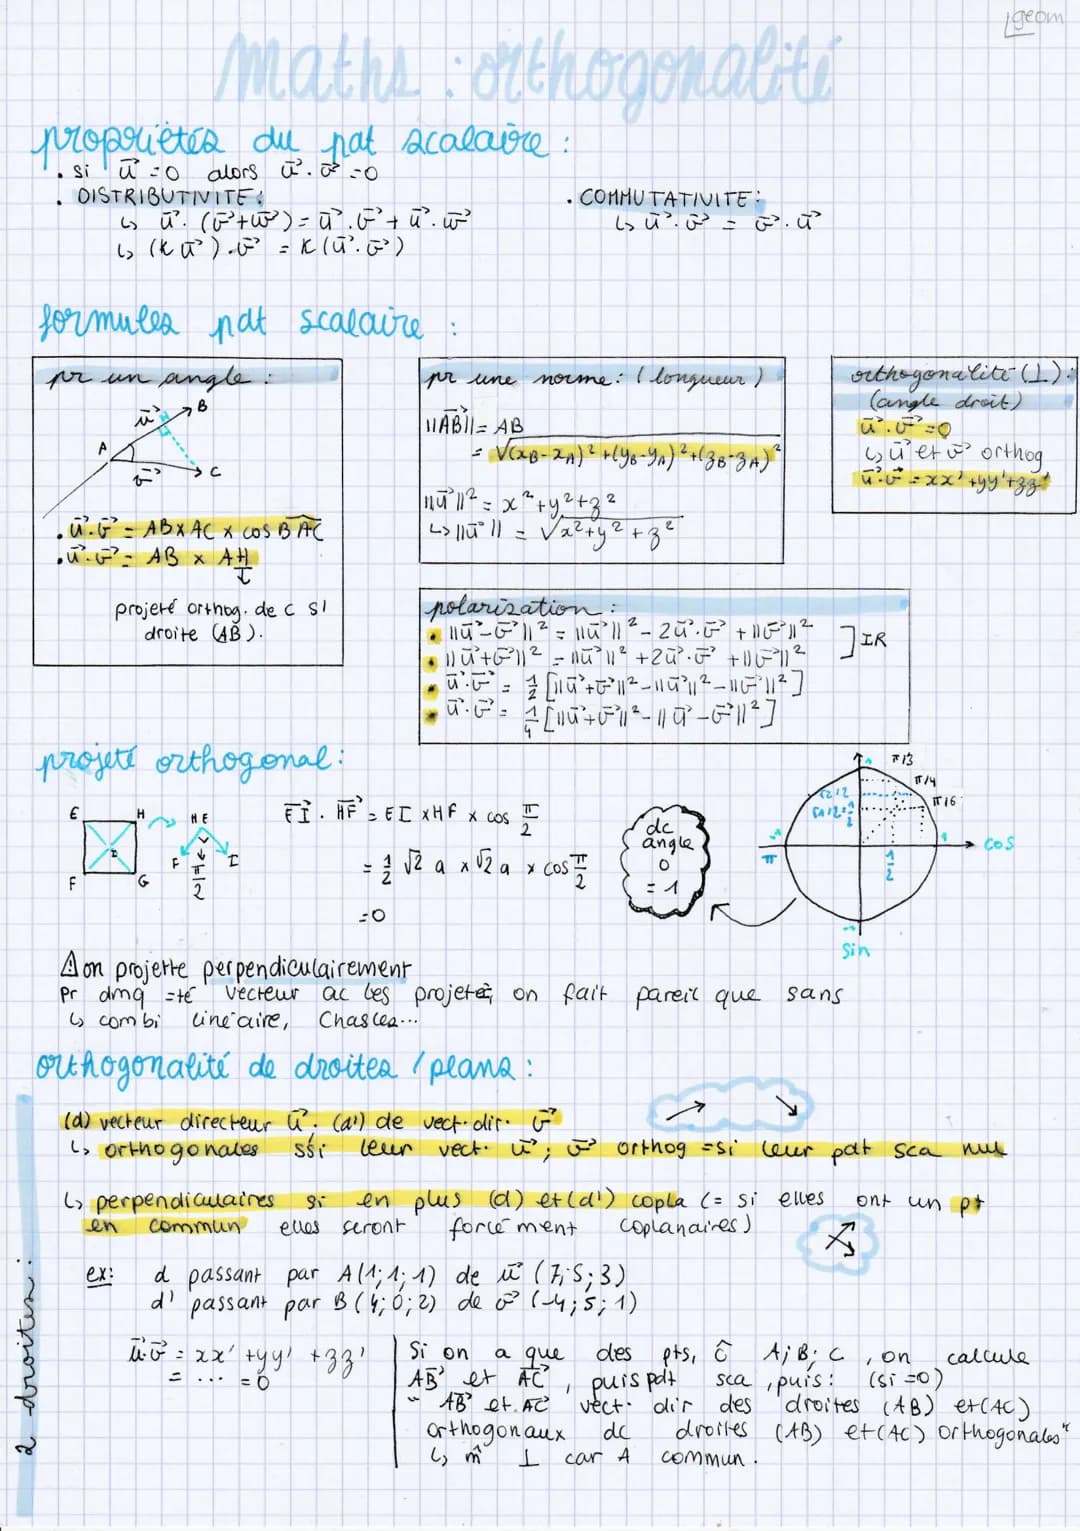 geom
Maths : orthogonalité
propriétés du pdt scalaire :
. si u⃗ =0 alors u⃗. v⃗ =0
. DISTRIBUTIVITE :
↳ u⃗. (v⃗+w⃗) = u⃗.v⃗ + u⃗.w⃗
↳ (K u⃗).v⃗ = K(u⃗.v⃗)
. COMMUTATIVITE :
↳ u⃗.v⃗ = v⃗.u⃗
formules pdt scalaire :
pr un angle :
u⃗ B
A
v⃗ C
. u⃗.v⃗ = AB x AC x cos BAC
. u⃗.v⃗ = AB x AH
projeté orthog. de C s/
droite (AB).
pr une norme : (longueur)
||AB⃗|| = AB
= √(xB-xA)²+(yB-yA)²+(zB-zA)²
||u⃗||² = x²+y²+z²
↳ ||u⃗|| = √x²+y²+z²
orthogonalité (⊥) :
(angle droit)
u⃗.v⃗ =0
↳ u⃗ et v⃗ orthog
u⃗.v⃗ = xx'+yy'+zz'
polarisation :
. ||u⃗-v⃗||² = ||u⃗||² - 2u⃗.v⃗ + ||v⃗||²
. ||u⃗+v⃗||² = ||u⃗||² +2u⃗.v⃗ +||v⃗||²
] IR
. u⃗.v⃗ = 1/2 [||u⃗+v⃗||²-||u⃗||²-||v⃗||²]
. u⃗.v⃗ = 1/4 [||u⃗+v⃗||²-||u⃗-v⃗||²]
projeté orthogonal :
E H
I
F G
H E
F I
π/2
EI⃗ . HF⃗ = EI x HF x cos π/2
= 1/2 √2 a x √2 a x cos π/2
=0
dc
angle
0
= 1
π/3
π/4
π/6
√2/2
1/2
1
cos
-1
π
1/2
-1
sin
⚠ on projette perpendiculairement
Pr dmq =té vecteur ac les projetés, on fait pareil que sans
↳ combi linéaire, Chasles...
orthogonalité de droites / plans :
2 droites :
(d) vecteur directeur u⃗. (d') de vect. dir. v⃗
↳ orthogonales ssi leur vect. u⃗; v⃗ orthog =si leur pdt sca nul
↳ perpendiculaires si en plus (d) et (d') copla (= si elles ont un pt
en commun elles seront forcément coplanaires)
ex: d passant par A(1; 1; 1) de u⃗ (7; 5; 3)
d' passant par B(4; 0; 2) de v⃗ (-4; 5; 1)
u⃗.v⃗ = xx' +yy' +zz'
= ... =0
Si on a que des pts, ô A; B; C , on calcule
AB⃗ et AC⃗ , puis pdt sca , puis : (si =0)
" AB⃗ et AC⃗ vect. dir des droites (AB) et (AC)
orthogonaux dc droites (AB) et (AC) orthogonales "
↳ m̂ ⊥ car A commun .